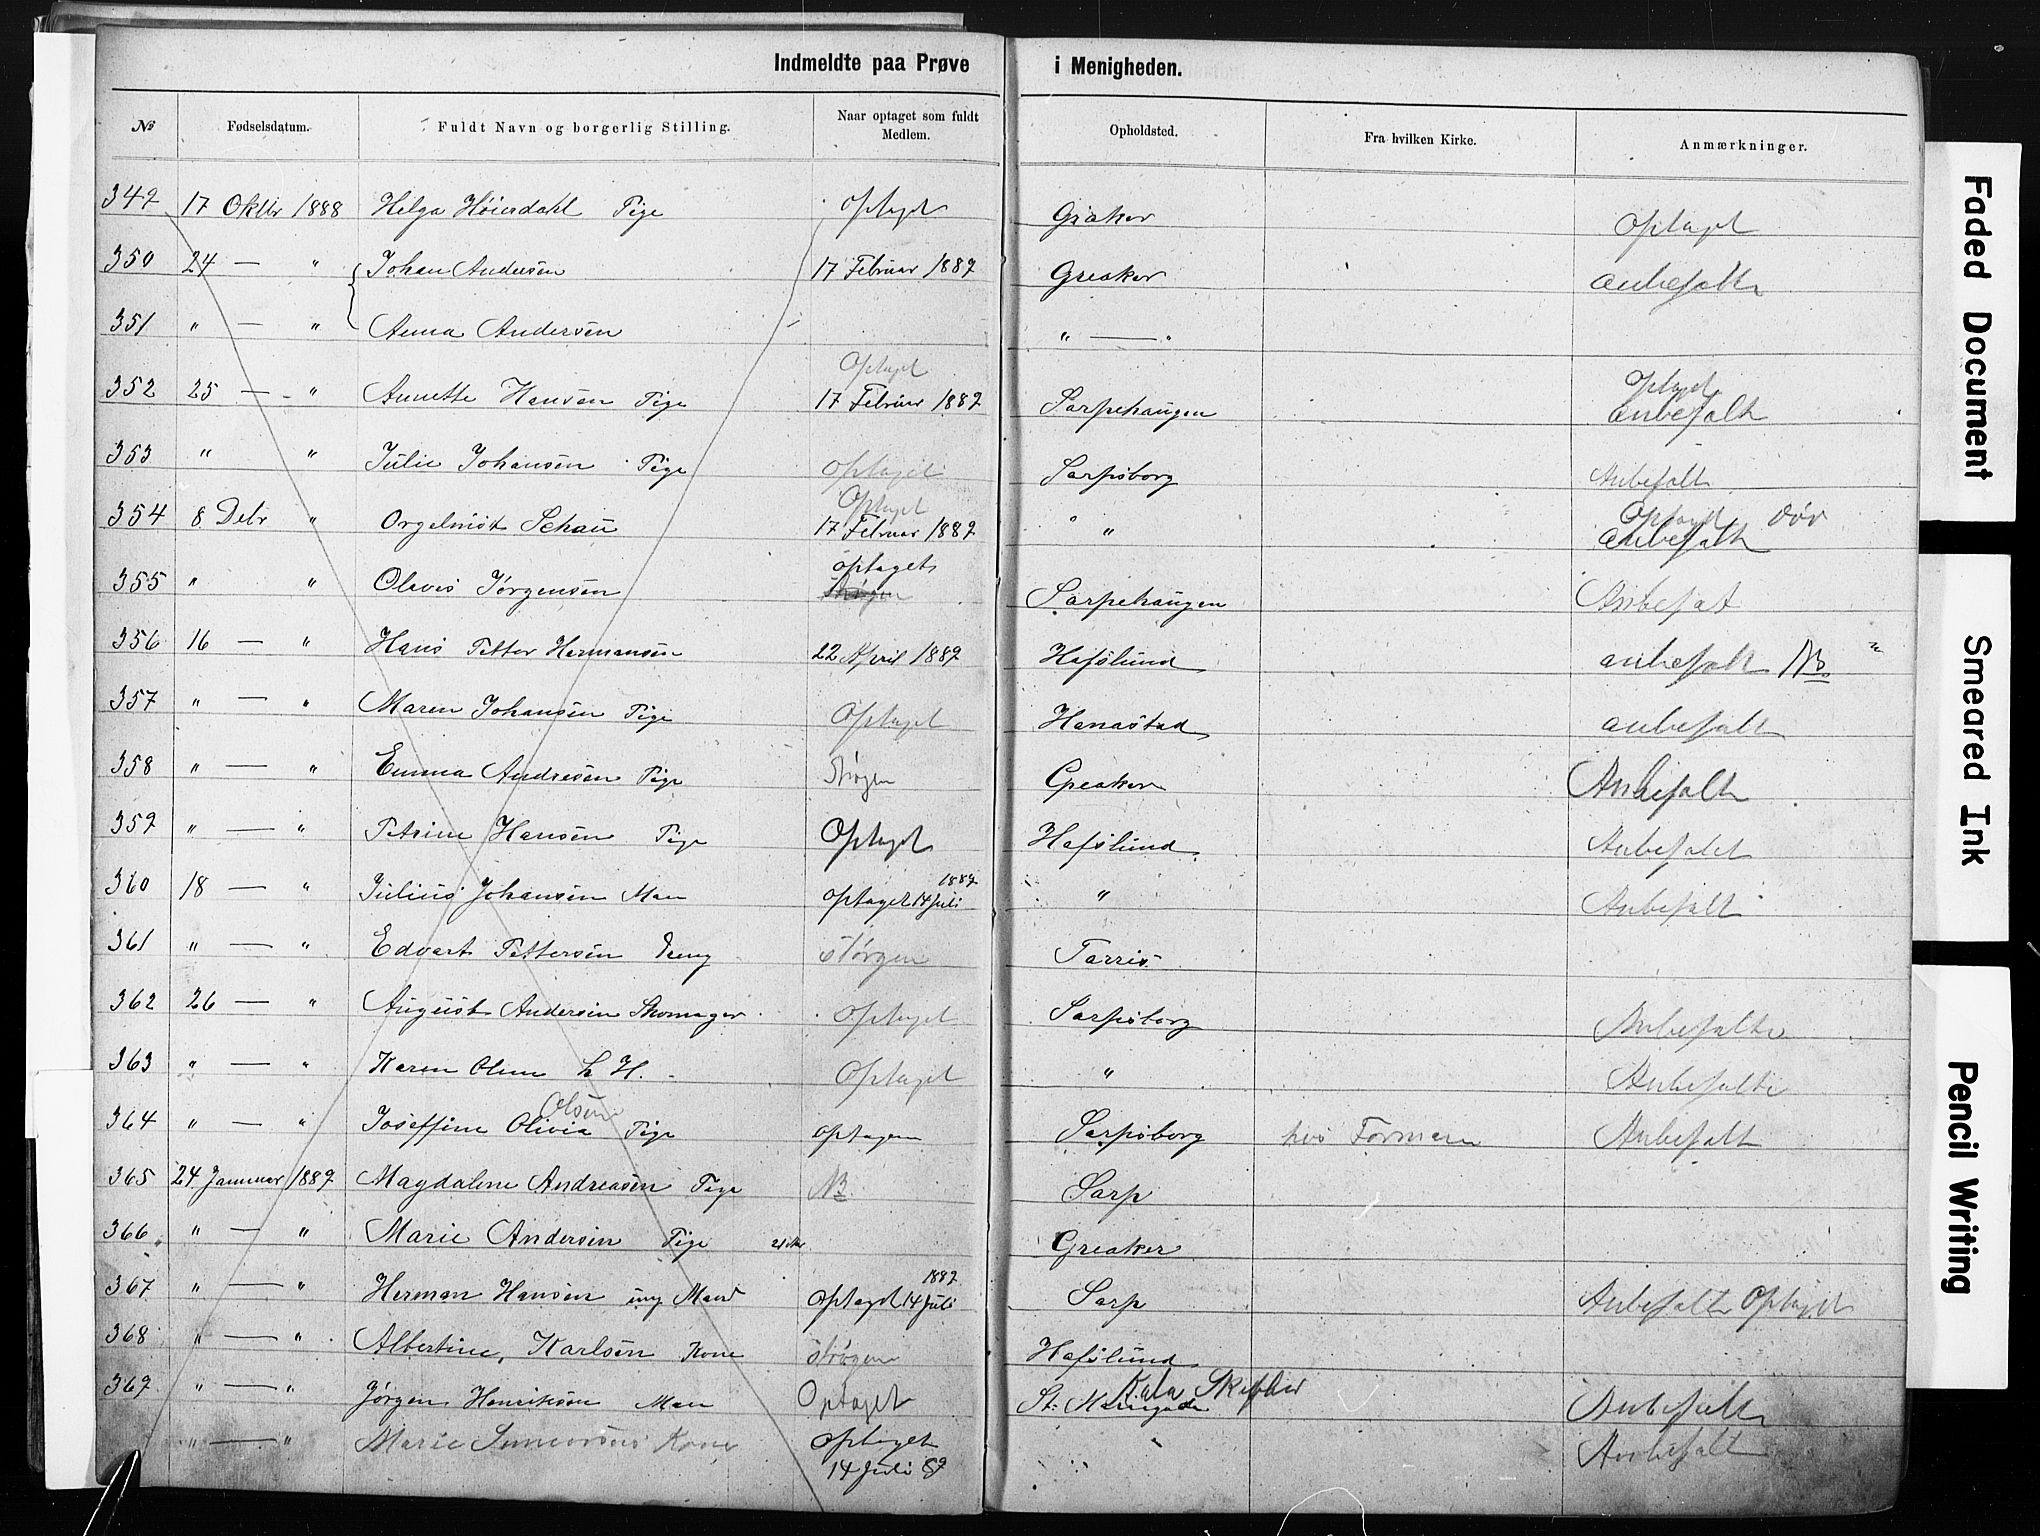 Indmeldte paa Prøve i Menigheden.
№ Fødselsdatum. Fuldt Navn og borgerlig Stilling. Naar optaget som fuldt Medlem. Opholdsted. Fra hvilken Kirke. Anmærkninger.
349 17 Oktbr 1888 Helga Høierdahl Pige optaget Greaker Optaget
350 24 — " Johan Andersen 17 Februar 1889 Greaker anbefalt
351 " — " Anna Andersen " — "
352 25 — " Annette Hansen Pige Optaget 17 Februar 1889 Sarpehaugen Optaget anbefalt
353 " " Julie Johansen Pige optaget Sarpsborg Anbefalt
354 8 Debr " Orgelnist Schau Optaget 17 Februar 1889 " Optaget anbefalt
355 " " Olavis Jørgensen optaget Strøgen Sarpehaugen Anbefat
356 16 — " Hans Petter Hermansen 22 April 1889 Hafslund anbefalt NB
357 " — " Maren Johansen Pige Optaget Hanastad anbefalt
358 " — " Emma Andresen Pige Strøgen Greaker Anbefalt
359 " — " Petrine Hansen Pige Optaget Hafslund Anbefalet
360 18 — " Julius Johansen Man optaget 14 Juli 1889 " Anbefalt
361 " — " Edvart Pettersen Deng Størgen Tarris
362 26 — " August Andersen Skomager Optaget Sarpsborg Anbefalte
363 " — " Karen Olsen L H. Optaget " Anbefalte
364 " — " Joseffine Olivia Olsen Pige optagen Sarpsborg hos Forman Anbefalt
365 24 Januar 1889 Magdalene Andreasen Pige NB Sarp
366 " — " Marie Andersen Pige Greaker
367 " — " Herman Hansen ung Mand optaget 14 Juli 1889 Sarp Anbefalt Optaget
368 " — " Albertine Karlsen Kone Strøgen Hafslund
369 " — " Jørgen Henriksen Man Optaget St. Mariegade Anbefalt
" — " Marie Kone optaget 14 Juli 89 Anbefalt
Faded Document
Smeared Ink
Pencil Writing